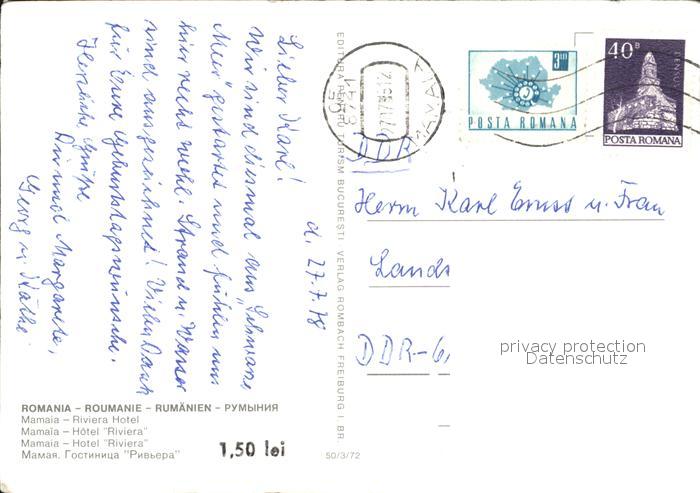 d. 27.7.78
Lieber Karl!
Wir sind diesmal ans "Schwarze
Meer" gestartet und fühlen uns
hier recht wohl. Strand u. Wasser
sind ausgezeichnet! Vielen Dank
für Eure Geburtstagswünsche.
Herzliche Grüße
Dir und Margarete,
Georg u. Käthe
EDITURA PENTRU TURISM BUCUREȘTI VERLAG ROMBACH FREIBURG I. BR.
MAMAIA
3
POSTA ROMANA
40 B
DENSUȘ
POSTA ROMANA
DDR
Herrn Karl Ernss u. Frau
Lands
DDR-6,
privacy protection
Datenschutz
ROMANIA – ROUMANIE – RUMÄNIEN – РУМЫНИЯ
Mamaia – Riviera Hotel
Mamaïa – Hôtel "Riviera"
Mamaia – Hotel "Riviera"
Мамая. Гостиница "Ривьера"
1,50 lei
50/3/72